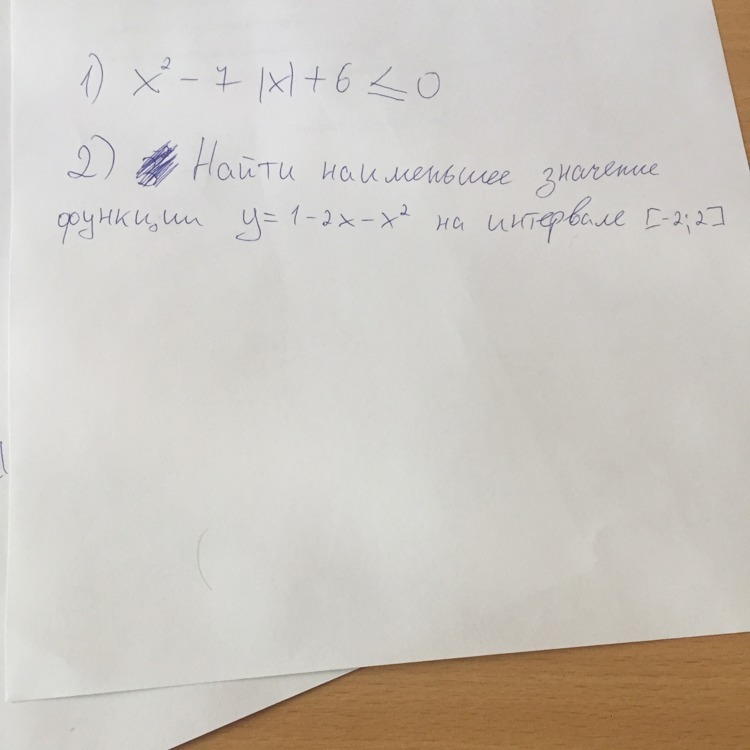 1) x² - 7|x| + 6 ≤ 0
2) Найти наименьшее значение
функции y = 1 - 2x - x² на интервале [-2; 2]